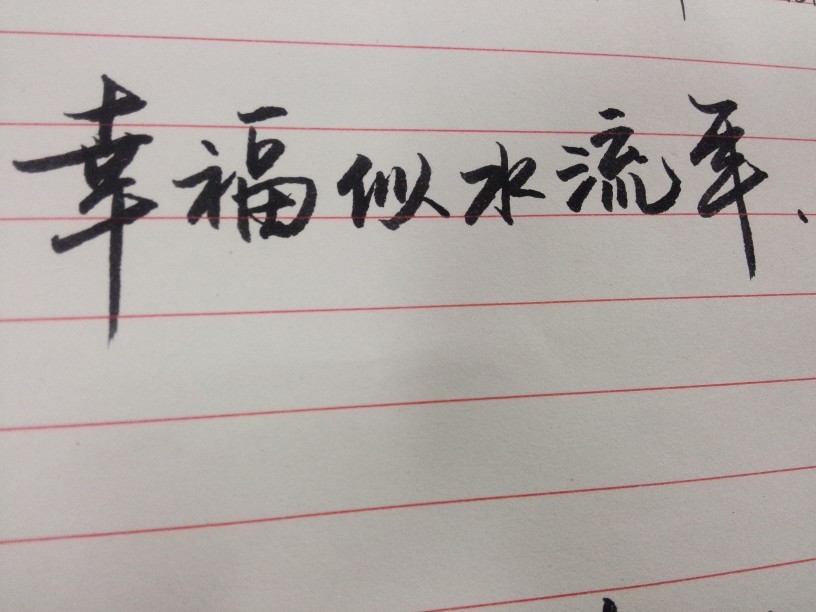 幸福似水流年.